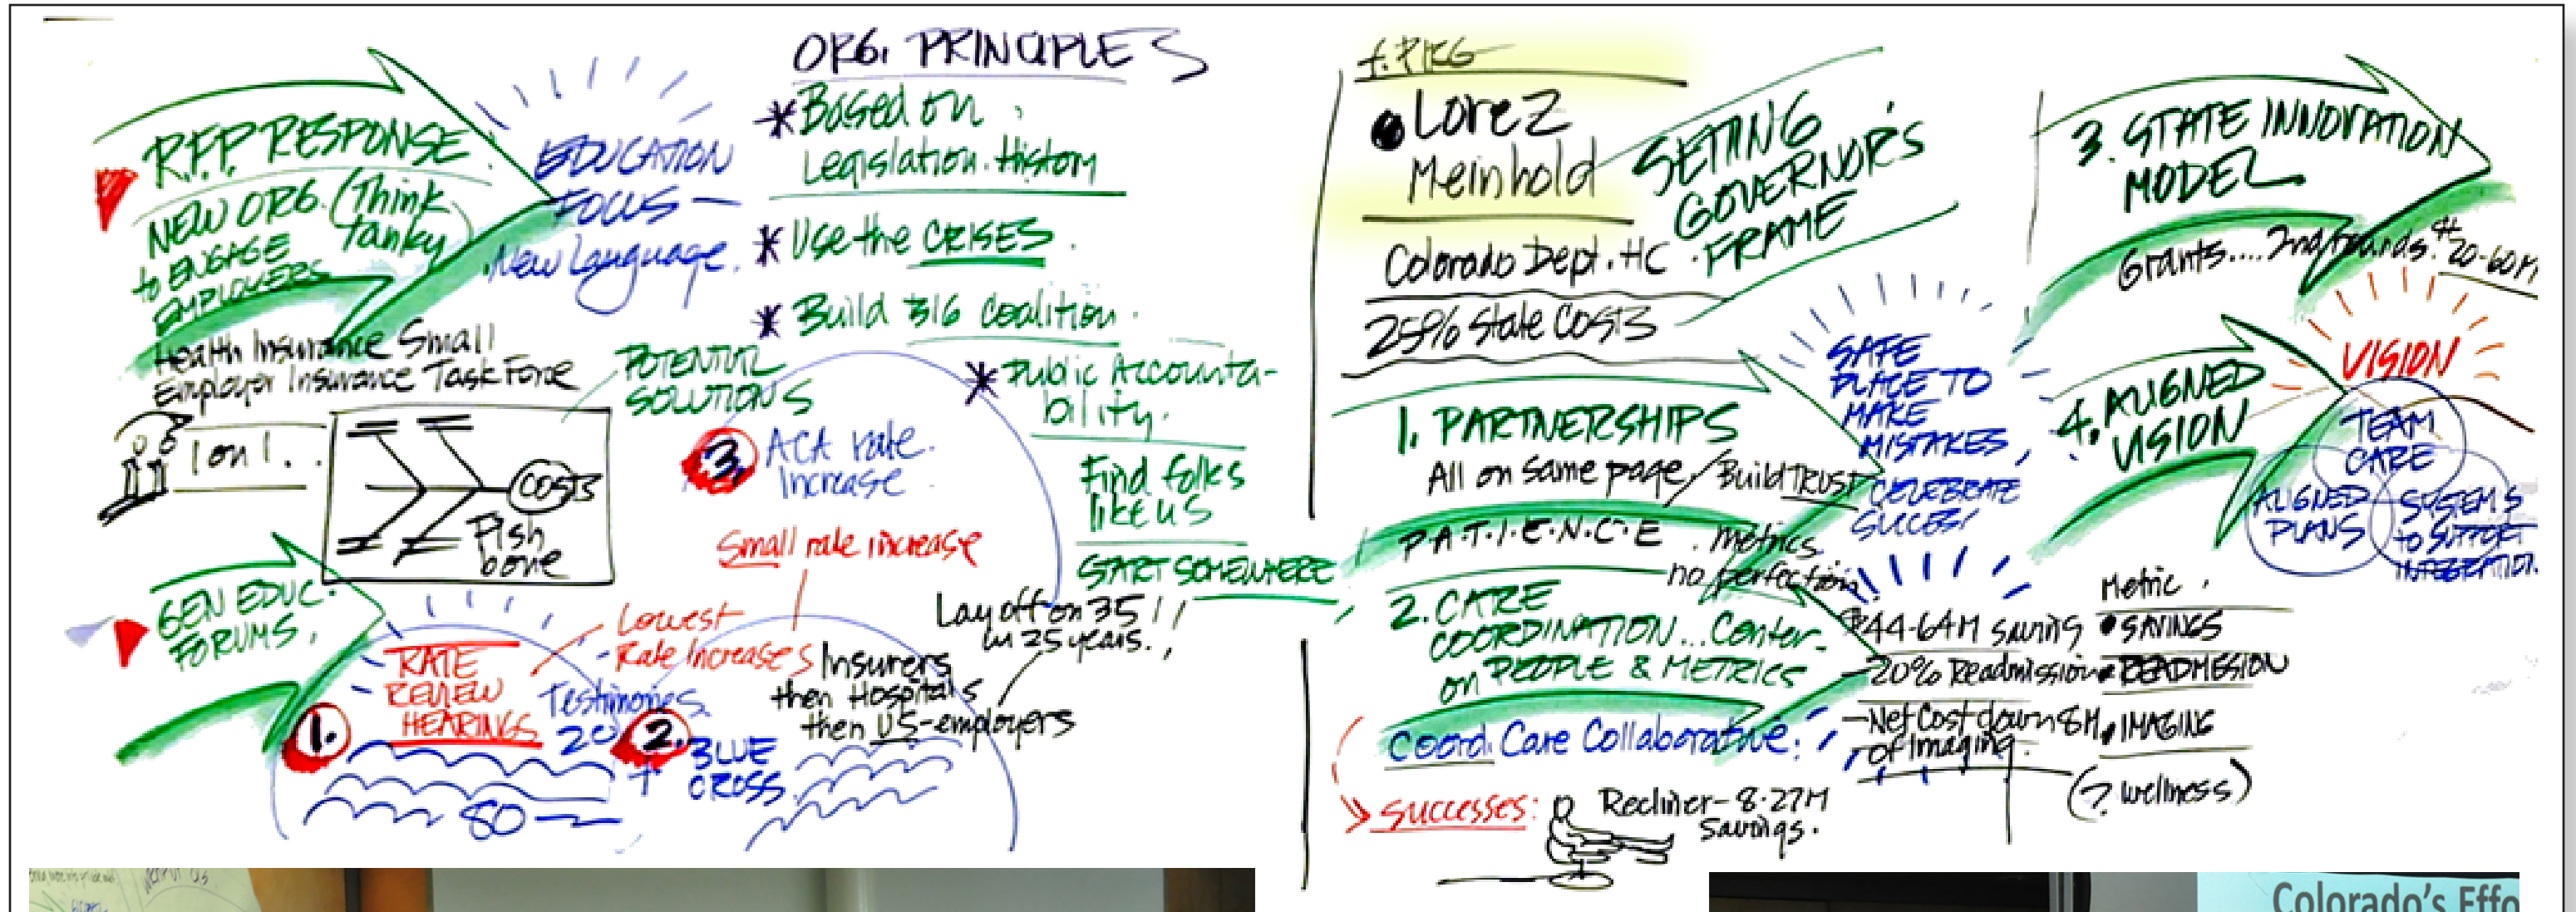 R.F.P. RESPONSE
NEW ORG. (Think
tanky)
to ENGAGE
EMPLOYERS
EDUCATION
FOCUS —
New Language.
Health Insurance Small
Employer Insurance Task Force
1 on 1...
COSTS
Fish
bone
POTENTIAL
SOLUTIONS
GEN EDUC.
FORUMS.
ORG. PRINCIPLES
* Based on
Legislation. History
* Use the CRISES.
* Build BIG Coalition.
* Public Accounta-
bility.
Find folks
like US
START SOMEWHERE
3. ACA rate
Increase
Small rate increase
Lowest
Rate Increases
1. RATE
REVIEW
HEARINGS
Testimonies
20
80
2. BLUE
CROSS
Insurers
then Hospitals
then US-employers
Lay off on 35!!
in 25 years.
Lorez
Meinhold
Colorado Dept. HC
25% State Costs
SETTING
GOVERNOR'S
FRAME
1. PARTNERSHIPS
All on same page / Build TRUST
P.A.T.I.E.N.C.E
. metrics
no perfection.
SAFE
PLACE TO
MAKE
MISTAKES,
CELEBRATE
SUCCESS/
2. CARE
COORDINATION... Center-
on PEOPLE & METRICS
Coord. Care Collaborative:
Successes:
Recliner- 8.27M
Savings.
$44-64M saving
20% Readmission
- Net Cost down 8M
of Imaging.
Metric.
• SAVINGS
• READMISSION
• IMAGING
(? wellness)
3. STATE INNOVATION
MODEL
Grants.... 2nd rounds. $20-60M
4. ALIGNED
VISION
VISION
TEAM
CARE
ALIGNED
PLANS
SYSTEMS
to SUPPORT
INTEGRATION.
Colorado's Effo